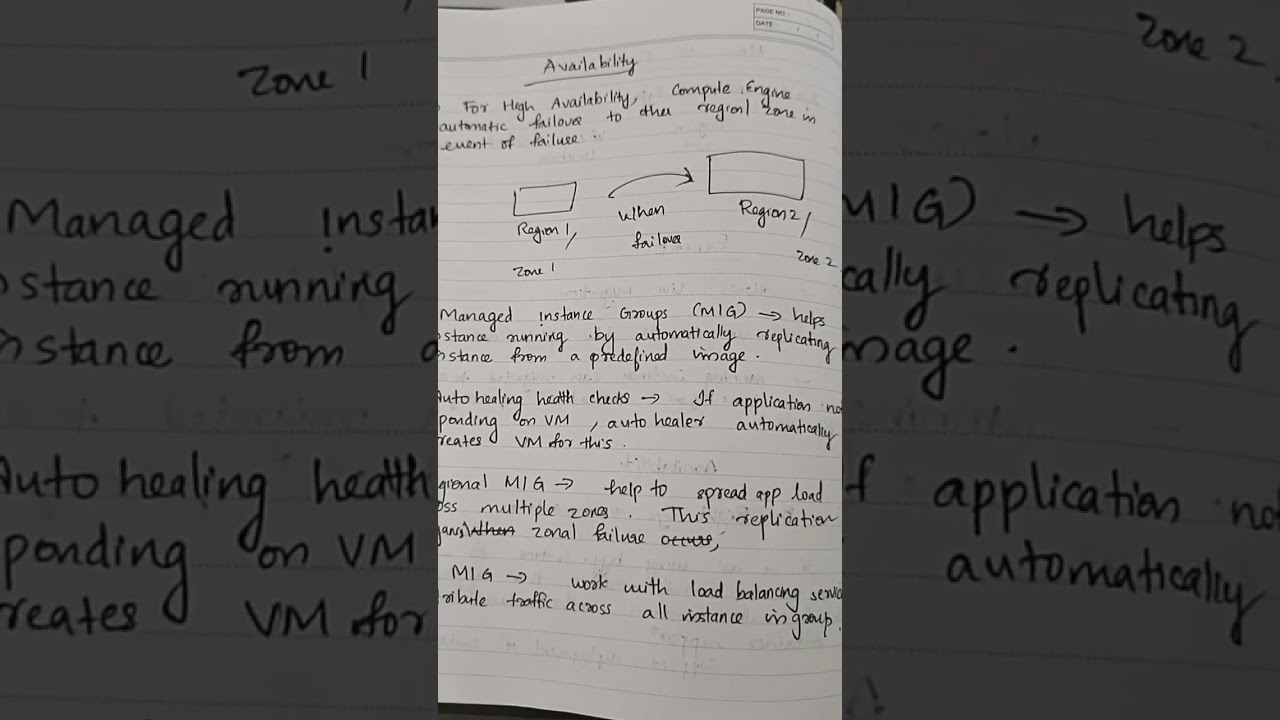 PAGE NO
DATE
Availability
For High Availability, Compute Engine
automatic failover to other region/zone in
event of failure.
Region 1/
Zone 1
When
failover
Region 2/
Zone 2
Managed instance Groups (MIG) → helps
stance running by automatically replicating
stance from a predefined image.
uto healing health checks → If application no
ponding on VM, auto healer automatically
reates VM for this.
gional MIG → help to spread app load
oss multiple zones. This replication
zonal failure
MIG → work with load balancing servic
ribute traffic across all instance in group.